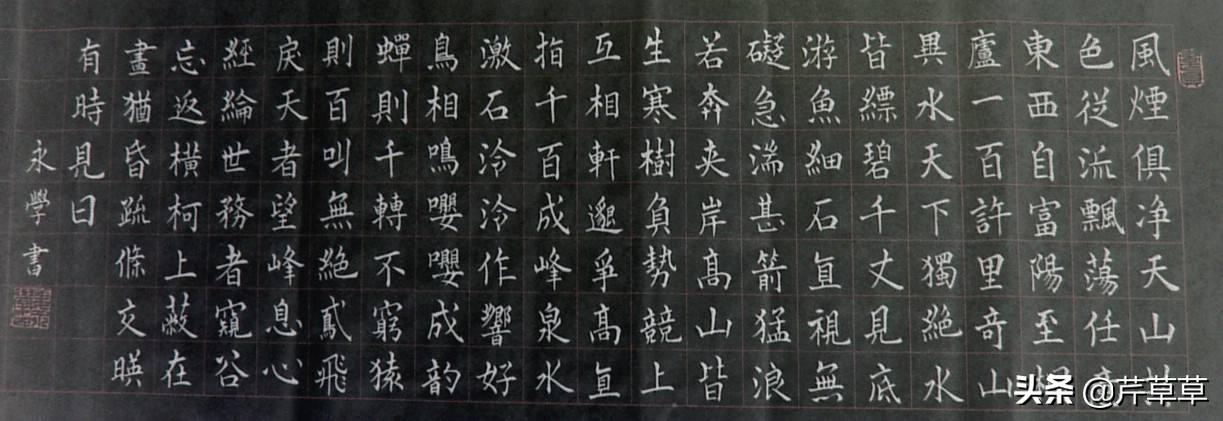 風煙俱净天山共
色從流飄蕩任意
東西自富陽至桐
廬一百許里奇山
異水天下獨絕水
皆縹碧千丈見底
游魚細石直視無
礙急湍甚箭猛浪
若奔夾岸高山皆
生寒樹負勢競上
互相軒邈爭高直
指千百成峰泉水
激石泠泠作響好
鳥相鳴嚶嚶成韵
蟬則千轉不窮猿
則百叫無絕鳶飛
戾天者望峰息心
經綸世務者窺谷
忘返橫柯上蔽在
晝猶昏疏條交暎
有時見日
永學書
头条 @芹草草